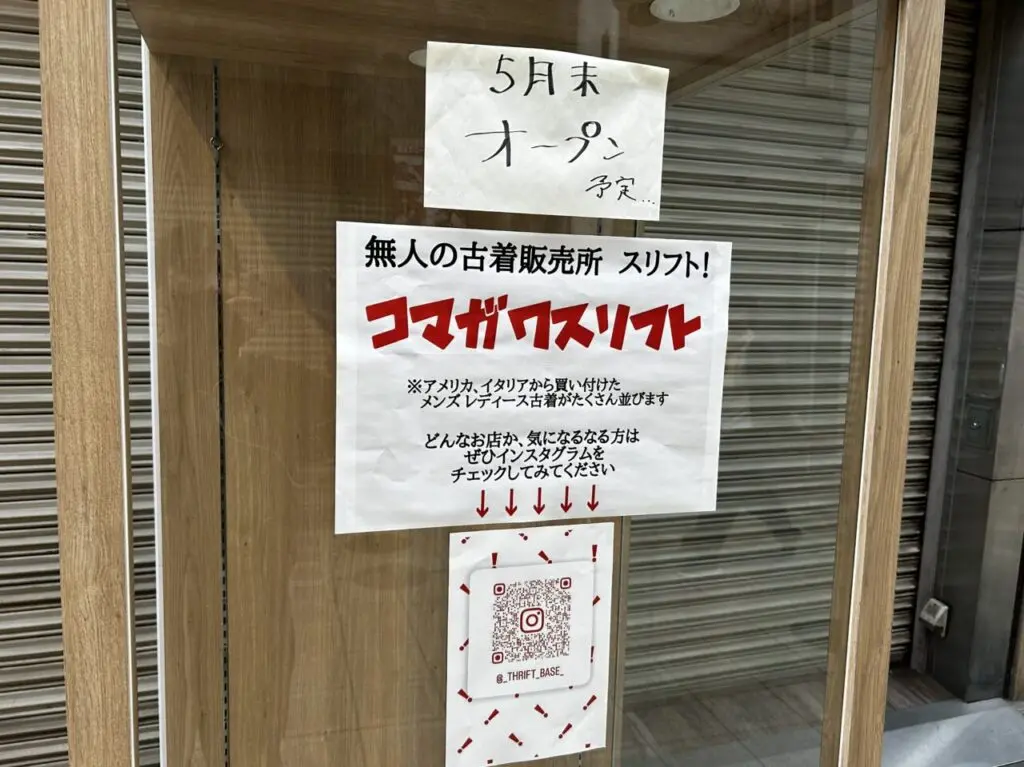 5月末
オープン
予定...
無人の古着販売所 スリフト!
コマガワスリフト
※アメリカ、イタリアから買い付けた
メンズ レディース古着がたくさん並びます
どんなお店か、気になるなる方は
ぜひインスタグラムを
チェックしてみてください
↓ ↓ ↓ ↓ ↓
@_THRIFT_BASE_